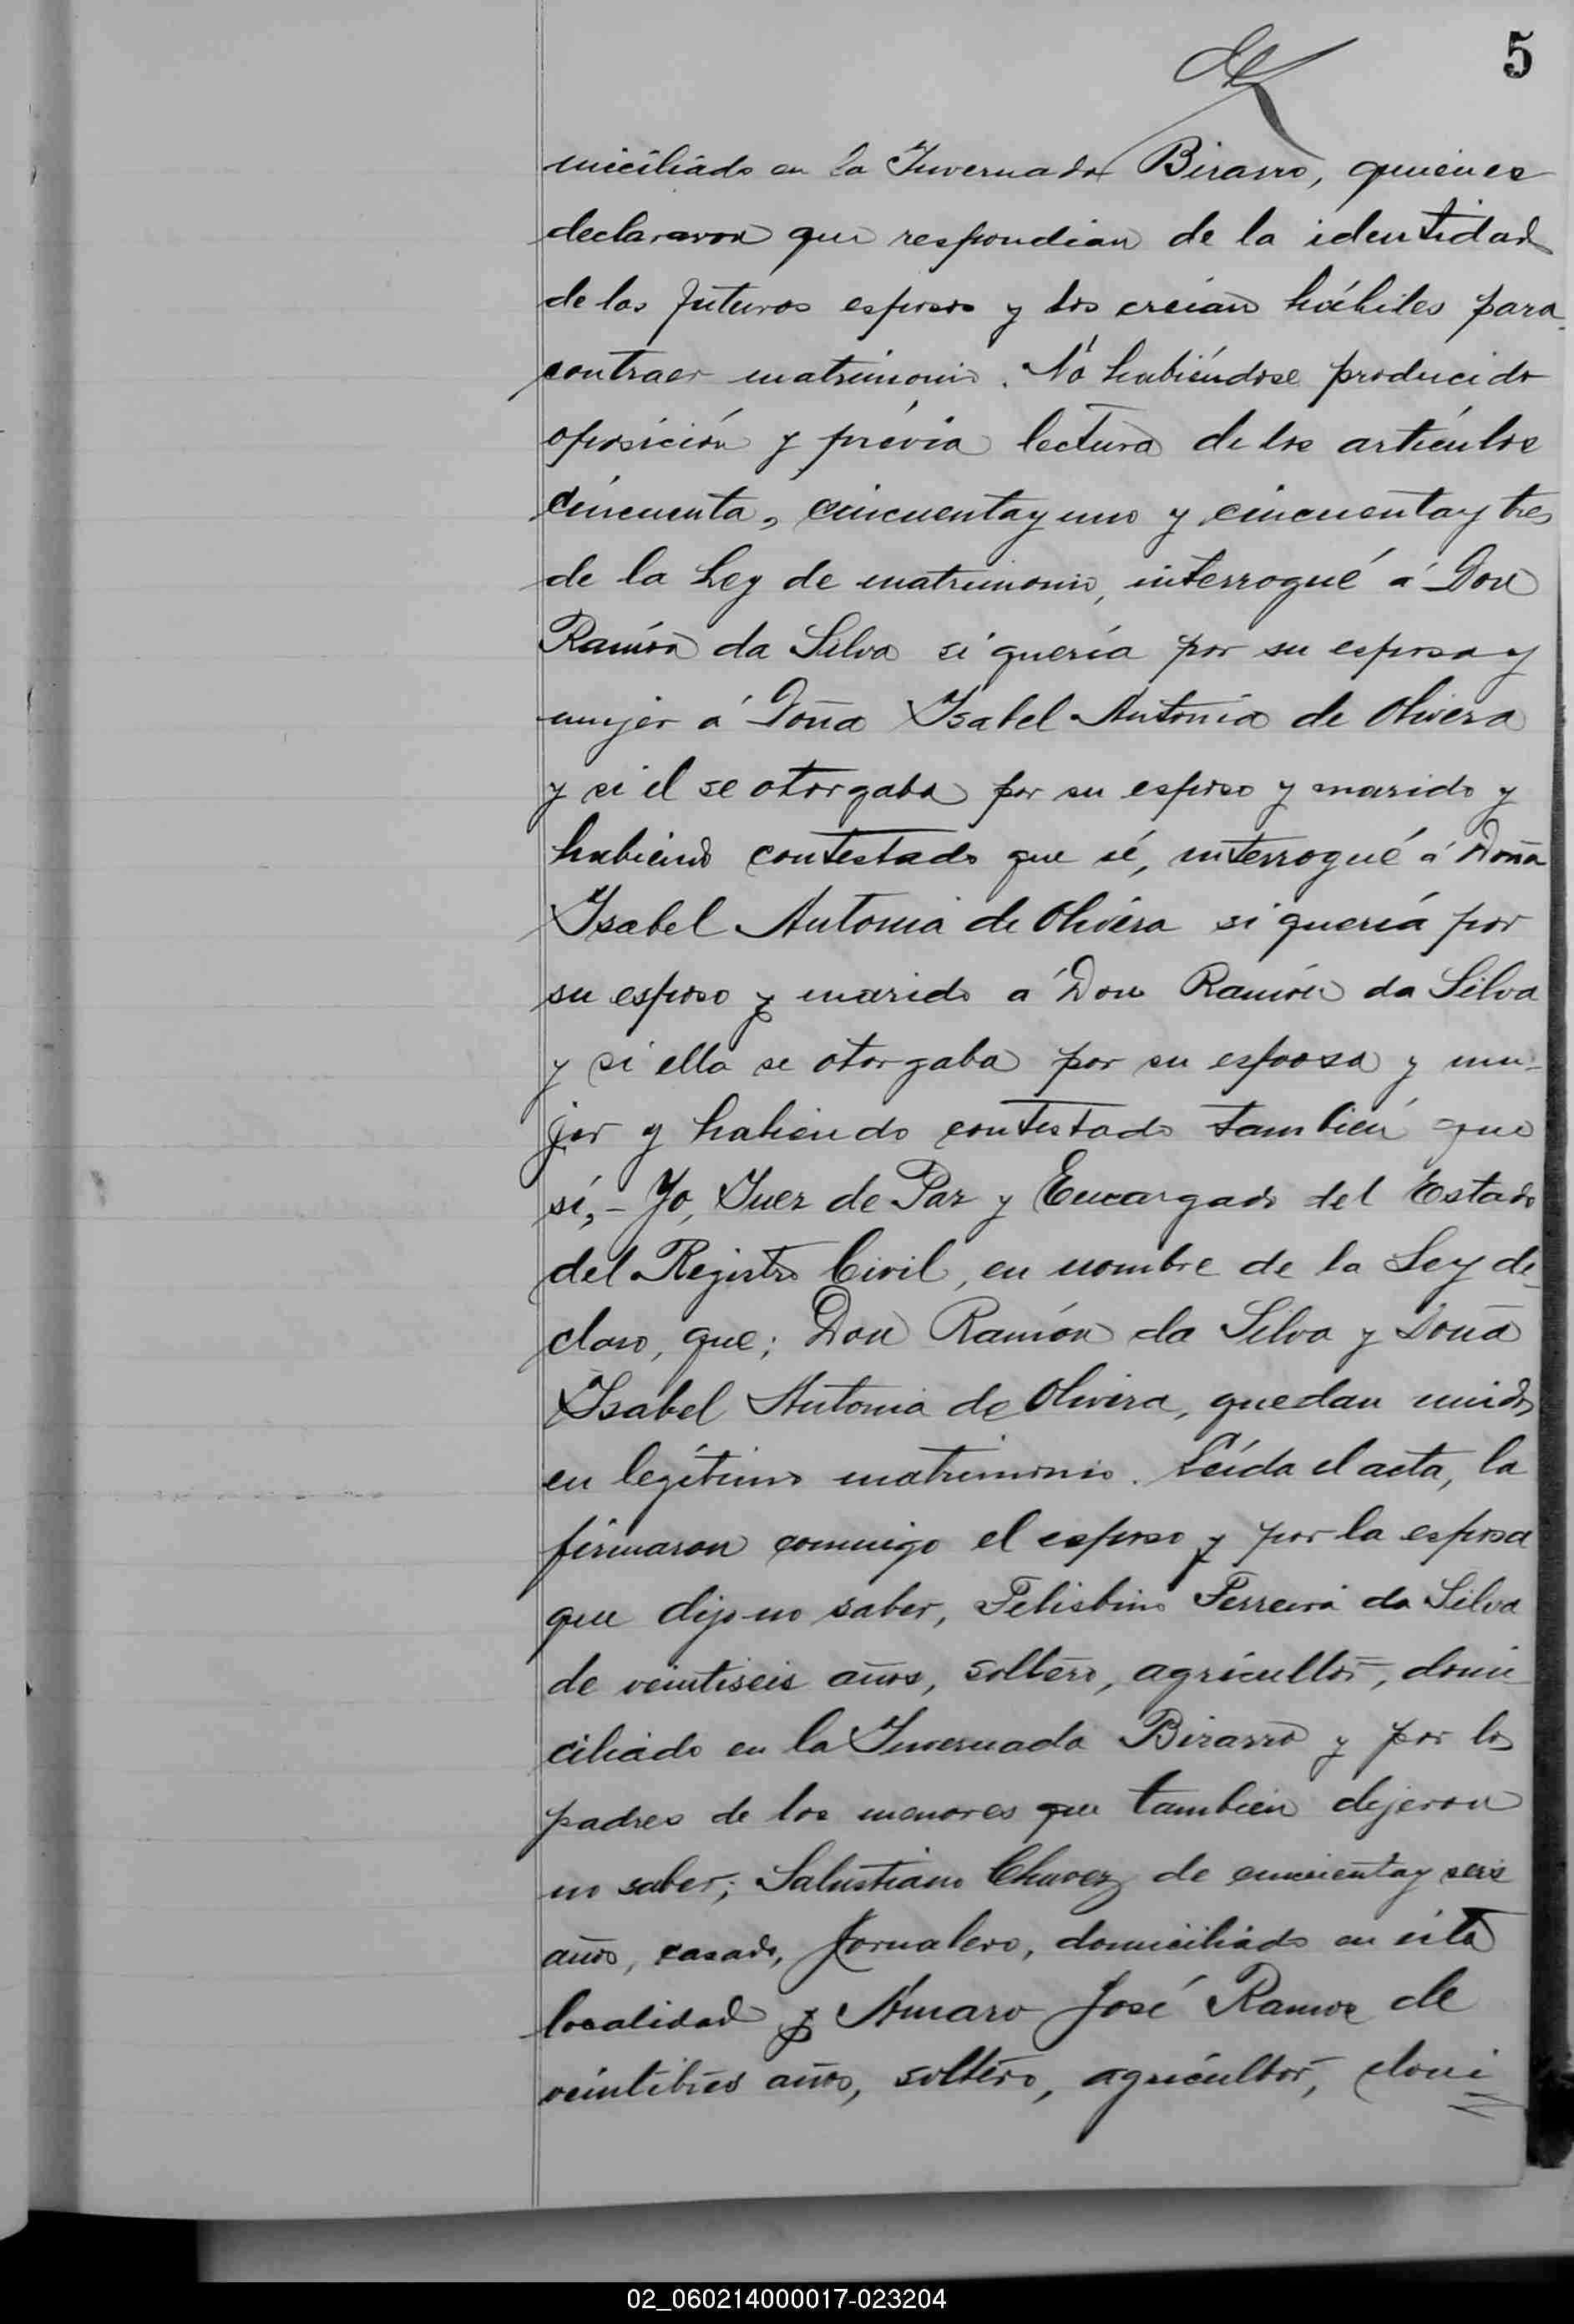 5
miciliado en la Invernada Bizarro, quienes
declararon que respondian de la identidad
de los futuros esposos y los creian hábiles para
contraer matrimonio. No habiéndose producido
oposición y prévia lectura de los artículos
cincuenta, cincuenta y uno y cincuenta y tres
de la Ley de matrimonio, interrogué á Don
Ramón da Silva si quería por su esposa y
mujer á Doña Isabel Antonia de Olivera
y si él se otorgaba por su esposo y marido y
habiendo contestado que sí, interrogué á Doña
Isabel Antonia de Olivera si quería por
su esposo y marido á Don Ramón da Silva
y si ella se otorgaba por su esposa y mu-
jer y habiendo contestado también que
sí,- Yo, Juez de Paz y Encargado del Estado
del Registro Civil, en nombre de la Ley de-
claro, que; Don Ramón da Silva y Doña
Isabel Antonia de Olivera, quedan unidos
en legítimo matrimonio. Leída el acta, la
firmaron conmigo el esposo y por la esposa
que dijo no saber, Ferreira da Silva
de veintiseis años, soltero, agricultor, domi-
ciliado en la Invernada Bizarro y por los
padres de los menores que tambien dijeron
no saber; Salustiano Chavez de cincuenta y seis
años, casado, Jornalero, domiciliado en ésta
localidad y Amaro José Ramos de
veintitres años, soltero, agricultor, domi
02_060214000017-023204